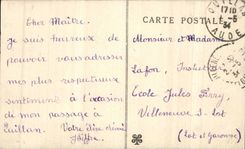 Cher Maître.
Je suis heureux de
pouvoir vous adresser
mes plus respectueux
sentiments à l'occasion
de mon passage à
Quillan. Votre
CARTE POSTALE
Monsieur et Madame
Lafon, Instit
Ecole Jules Ferry
Villeneuve S. Lot
(Lot et Garonne)
17 10
34
AUDE